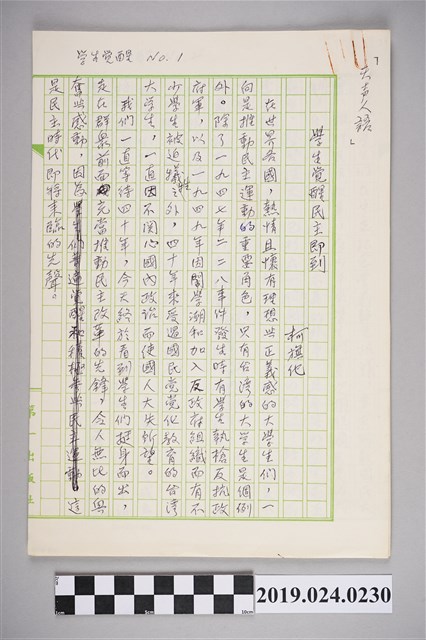 學生覺醒 No. 1
「夫妻人語」
學生覺醒民主即到
柯旗化
在世界各國，熱情且懷有理想與正義感的大學生們，一
向是推動民主運動的重要角色，只有台灣的大學生是個例
外。除了一九四七年二二八事件發生時有學生執槍反抗政
府軍，以及一九四九年因鬧學潮和加入反政府組織而有不
少學生被迫犧牲之外，四十年來受過國民黨黨化教育的台灣
大學生，一直因不關心國內政治而使國人大失所望。
我們一直等待四十年，今天終於看到學生們挺身而出，
走在群眾前面充當推動民主改革的先鋒，令人無比的興
奮與感動，因為學生們普遍覺醒和積極參與民主運動，這
是民主時代即將來臨的先聲。
第一出版社
1cm
5cm
10cm
2019.024.0230